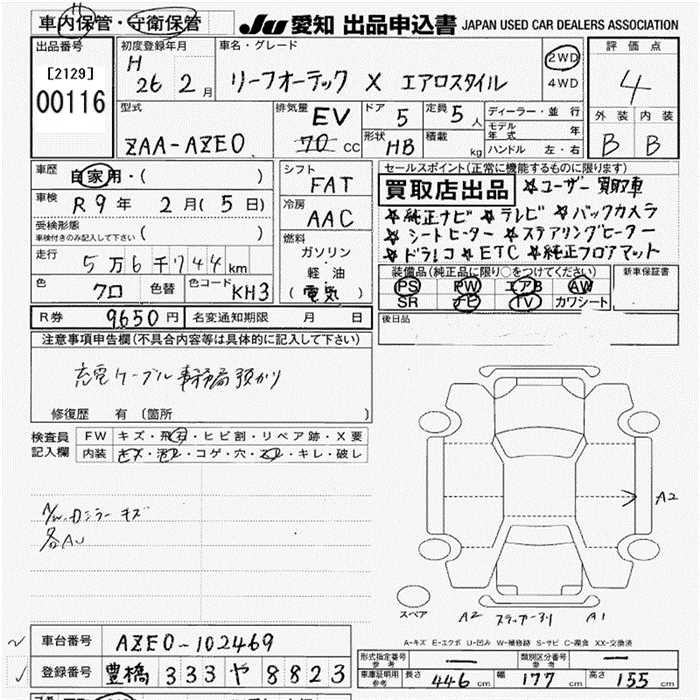 車内保管・守衛保管
JU 愛知 出品申込書 JAPAN USED CAR DEALERS ASSOCIATION
出品番号 [2129] 00116
初度登録年月 H 26 2月
車名・グレード リーフオーテック X エアロスタイル
2WD 4WD
評価点 4
外装 内装
B B
型式 ZAA-AZE0
排気量 EV 70 CC
ドア 5 定員 5人
形状 HB 積載 kg
ディーラー・並行
モデル年式 年
ハンドル 左・右
車歴 自家用・( )
車検 R9年 2月(5日)
受検形態 車検付きのみ記入して下さい ( )
走行 5万6千744km
色 クロ 色替 色コード KH3
シフト FAT
冷房 AAC
燃料 ガソリン・軽油 (電気)
セールスポイント(正常に機能するものに限ります)
買取店出品 ☆ユーザー買取車
☆純正ナビ ☆テレビ ☆バックカメラ
☆シートヒーター ☆ステアリングヒーター
☆ドラレコ ☆ETC ☆純正フロアマット
装備品(純正品に限り○をつけてください) 新車保証書
PS PW エアB AW
SR ナビ TV カワシート
後日品
R券 9650円 名変通知期限 月 日
注意事項申告欄(不具合内容等は具体的に記入して下さい)
充電ケーブル事務局預かり
修復歴 有 (箇所 )
検査員記入欄 FW キズ・飛石・ヒビ割・リペア跡・X要
内装 キズ・汚れ・コゲ・穴・スレ・キレ・破レ
キズ
各AU
A2
スペア A2 A1
A-キズ E-エクボ U-凹み W-補修跡 S-サビ C-腐食 XX-交換済
車台番号 AZE0-102469
登録番号 豊橋 333 や 8823
形式指定番号 参考 — 類別区分番号 参考 —
車庫証明用 参考 長さ 446cm 幅 177cm 高さ 155cm